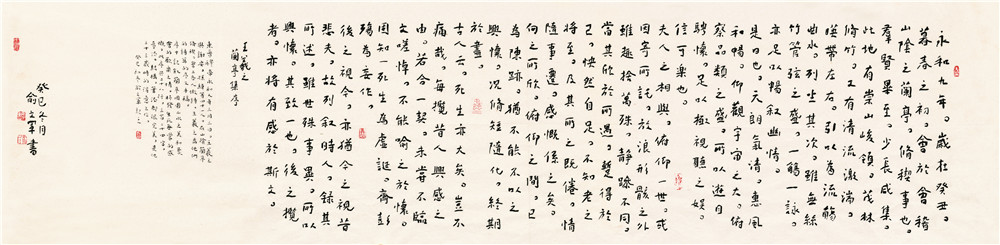 永和九年。歲在癸丑。
暮春之初。會於會稽
山陰之蘭亭。脩稧事也。
群賢畢至。少長咸集。
此地有崇山峻領。茂林
脩竹。又有清流激湍。
暎帶左右。引以為流觴
曲水。列坐其次。雖無絲
竹管弦之盛。一觴一詠。
亦足以暢敘幽情。
是日也。天朗氣清。惠風
和暢。仰觀宇宙之大。俯
察品類之盛。所以遊目
騁懷。足以極視聽之娛。
信可樂也。
夫人之相與。俯仰一世。或
因寄所託。放浪形骸之外
雖趣捨萬殊。靜躁不同。
當其欣於所遇。暫得於
己。快然自足。不知老之
將至。及其所之既倦。情
隨事遷。感慨係之矣。
向之所欣。俯仰之間。已
為陳跡。猶不能不以之
興懷。況脩短隨化。終期
於盡。
古人云。死生亦大矣。豈不
痛哉。每攬昔人興感之
由。若合一契。未嘗不臨
文嗟悼。不能喻之於懷。
固知一死生為虛誕。齊彭
殤為妄作。
後之視今。亦猶今之視昔
悲夫。故列敘時人。錄其
所述。雖世殊事異。所以
興懷。其致一也。後之攬
者。亦將有感於斯文。
王羲之
蘭亭集序
癸巳冬月
俞 軍 書